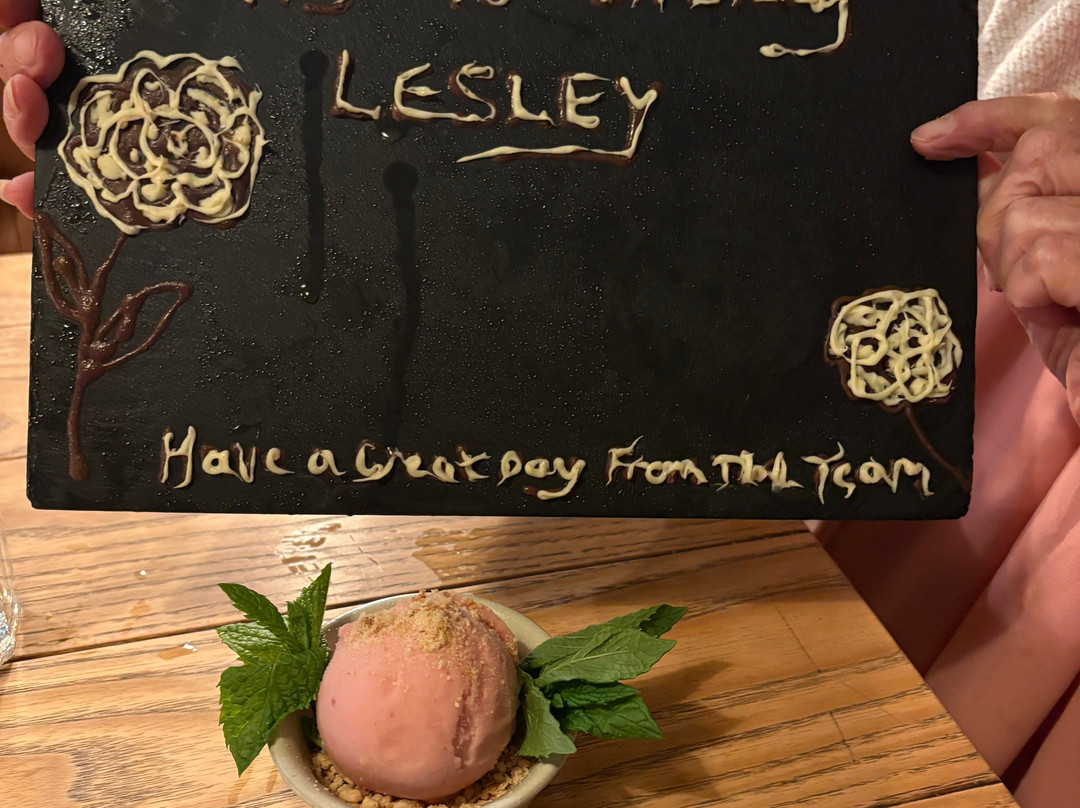 LESLEY
Have a Great Day From The Team